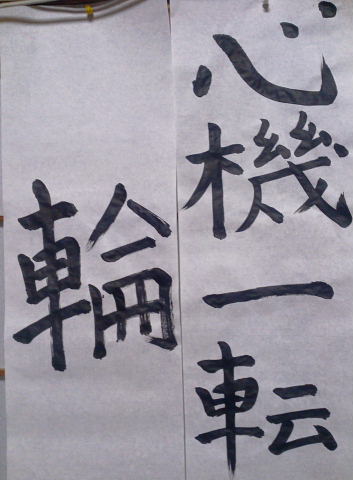 心機一転
輪